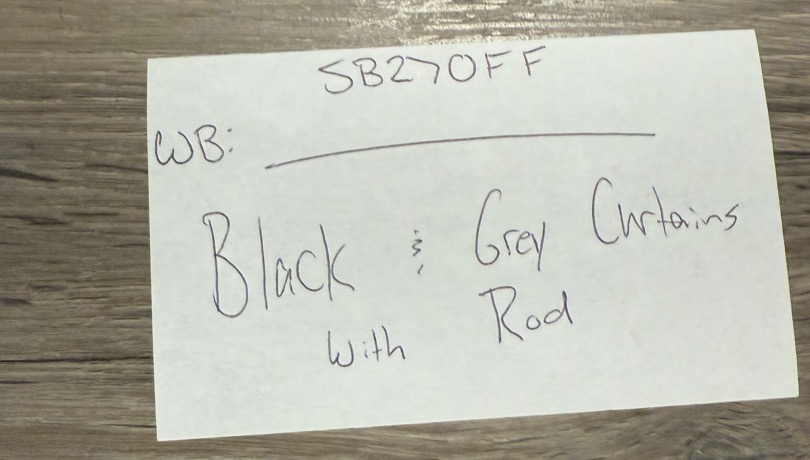 SB27OFF
WB:
Black & Grey Curtains
With Rod